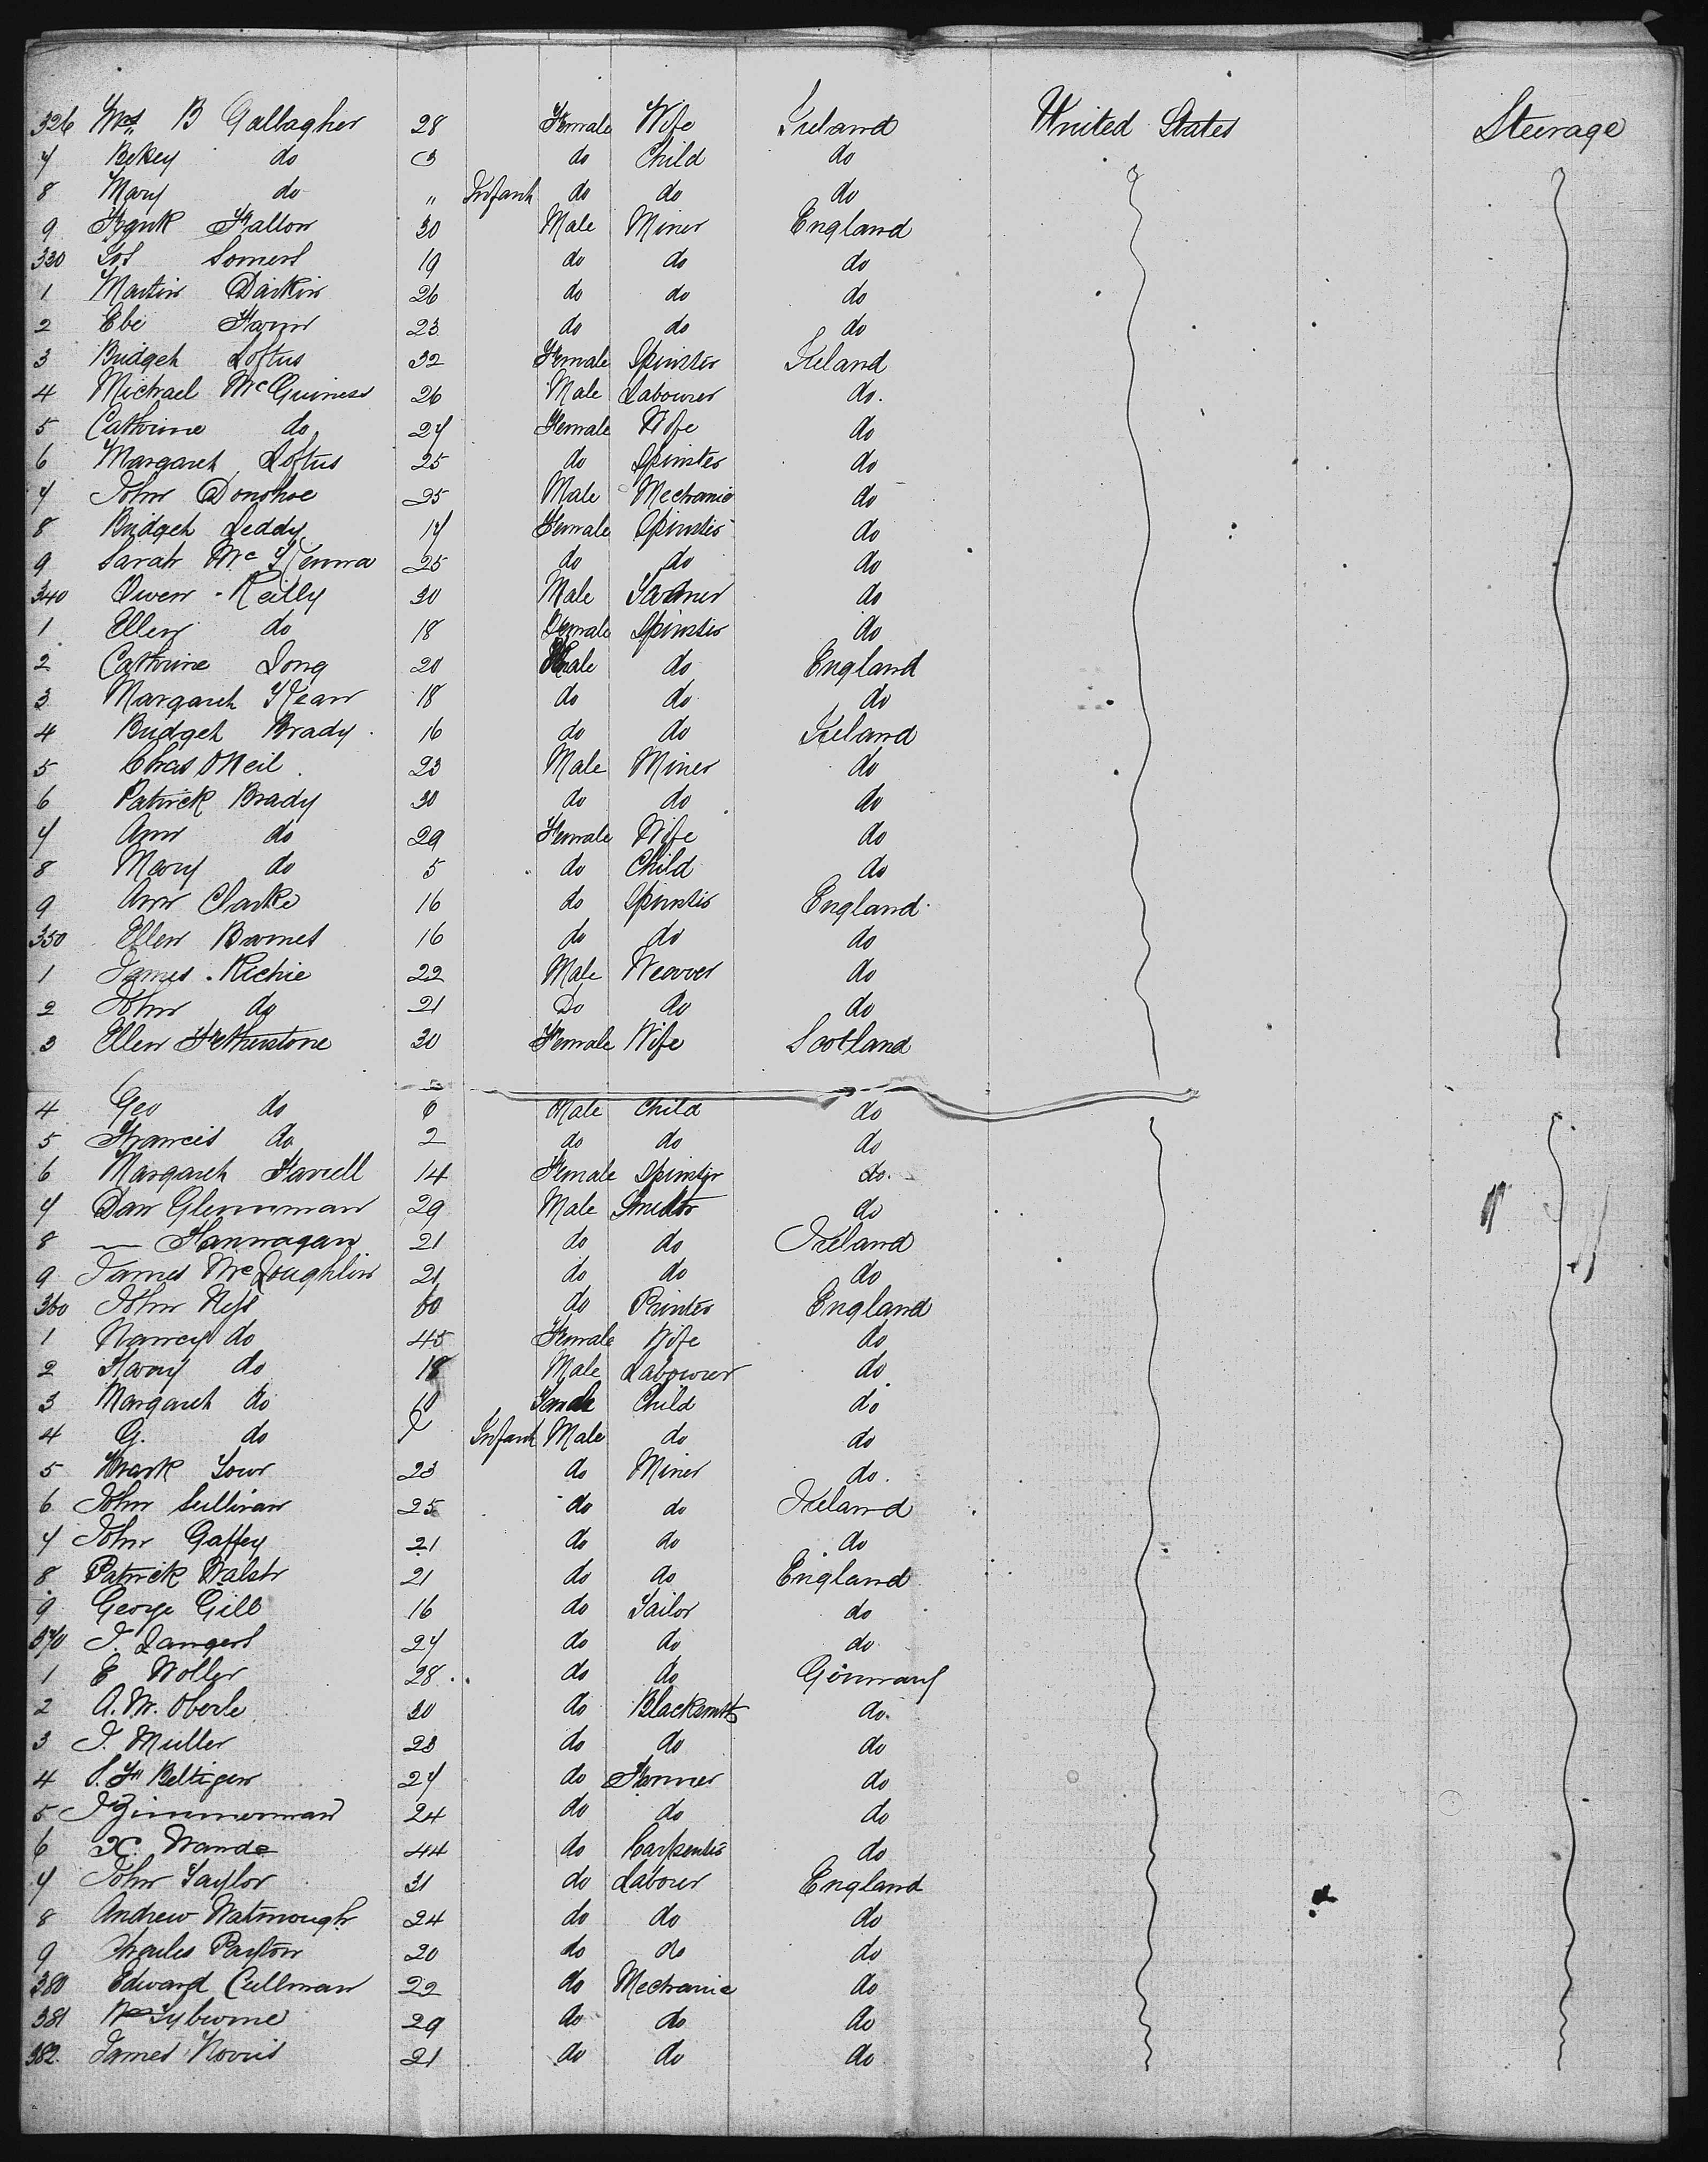 326 Mrs B Gallagher 28 Female Wife Ireland United States Steerage
7 Bekey do 3 do Child do
8 Mary do " Infant do do do
9 Frank Fallon 30 Male Miner England
330 Jos Somers 19 do do do
1 Martin Darkin 26 do do do
2 Ebe 23 do do do
3 Bridget Loftus 32 Female Spinster Ireland
4 Michael McGuiness 26 Male Labourer do.
5 Cathrine do 27 Female Wife do
6 Margaret Loftus 25 do Spinster do
7 John Donohoe 25 Male Mechanic do
8 Bridget Leddy 17 Female Spinster do
9 Sarah McKenna 25 do do do
340 Owen Reilly 30 Male do
1 Ellen do 18 Female Spinster do
2 Cathrine Long 20 do England
3 Margaret Kean 18 do do do
4 Bridget Brady 16 do do Ireland
5 Chas ONeil 23 Male Miner do
6 Patrick Brady 30 do do do
7 Ann do 29 Female Wife do
8 Mary do 5 do Child do
9 Ann Clarke 16 do Spinster England
350 Ellen Barnes 16 do do do
1 James Richie 22 Male Weaver do
2 John do 21 Do do do
3 Ellen Fetherstone 30 Female Wife Scotland
4 Geo do 6 Male Child do
5 Francis do 2 do do do
6 Margaret Farrell 14 Female Spinster do.
7 Dan Glennman 29 Male do
8 — Flannagan 21 do do Ireland
9 James McLoughlin 21 do do do
360 John Ness 60 do Printer England
1 Nancy do 45 Female Wife do
2 Harry do 18 Male Labourer do
3 Margaret do Female Child do
4 G. do Infant Male do do
5 Mark 23 do Miner do.
6 John Sullivan 25 do do Ireland
7 John Gaffey 21 do do do
8 Patrick Walsh 21 do do England
9 George Gill 16 do Tailor do
370 J. Langers 27 do do do
1 E Woller 28 do do Germany
2 A. W. Oberle 30 do Blacksmith do
3 J. Muller 23 do do do
4 S. F. Beltigen 27 do Farmer do
5 J Zimmerman 24 do do do
6 X. Wande 44 do Carpenter do
7 John Taylor 31 do Labourer England
8 Andrew Watmough 24 do do do
9 Charles Payton 20 do do do
380 Edward Cullman 22 do Mechanic do
381 Wm Tyburne 29 do do do
382. James Norris 21 do do do